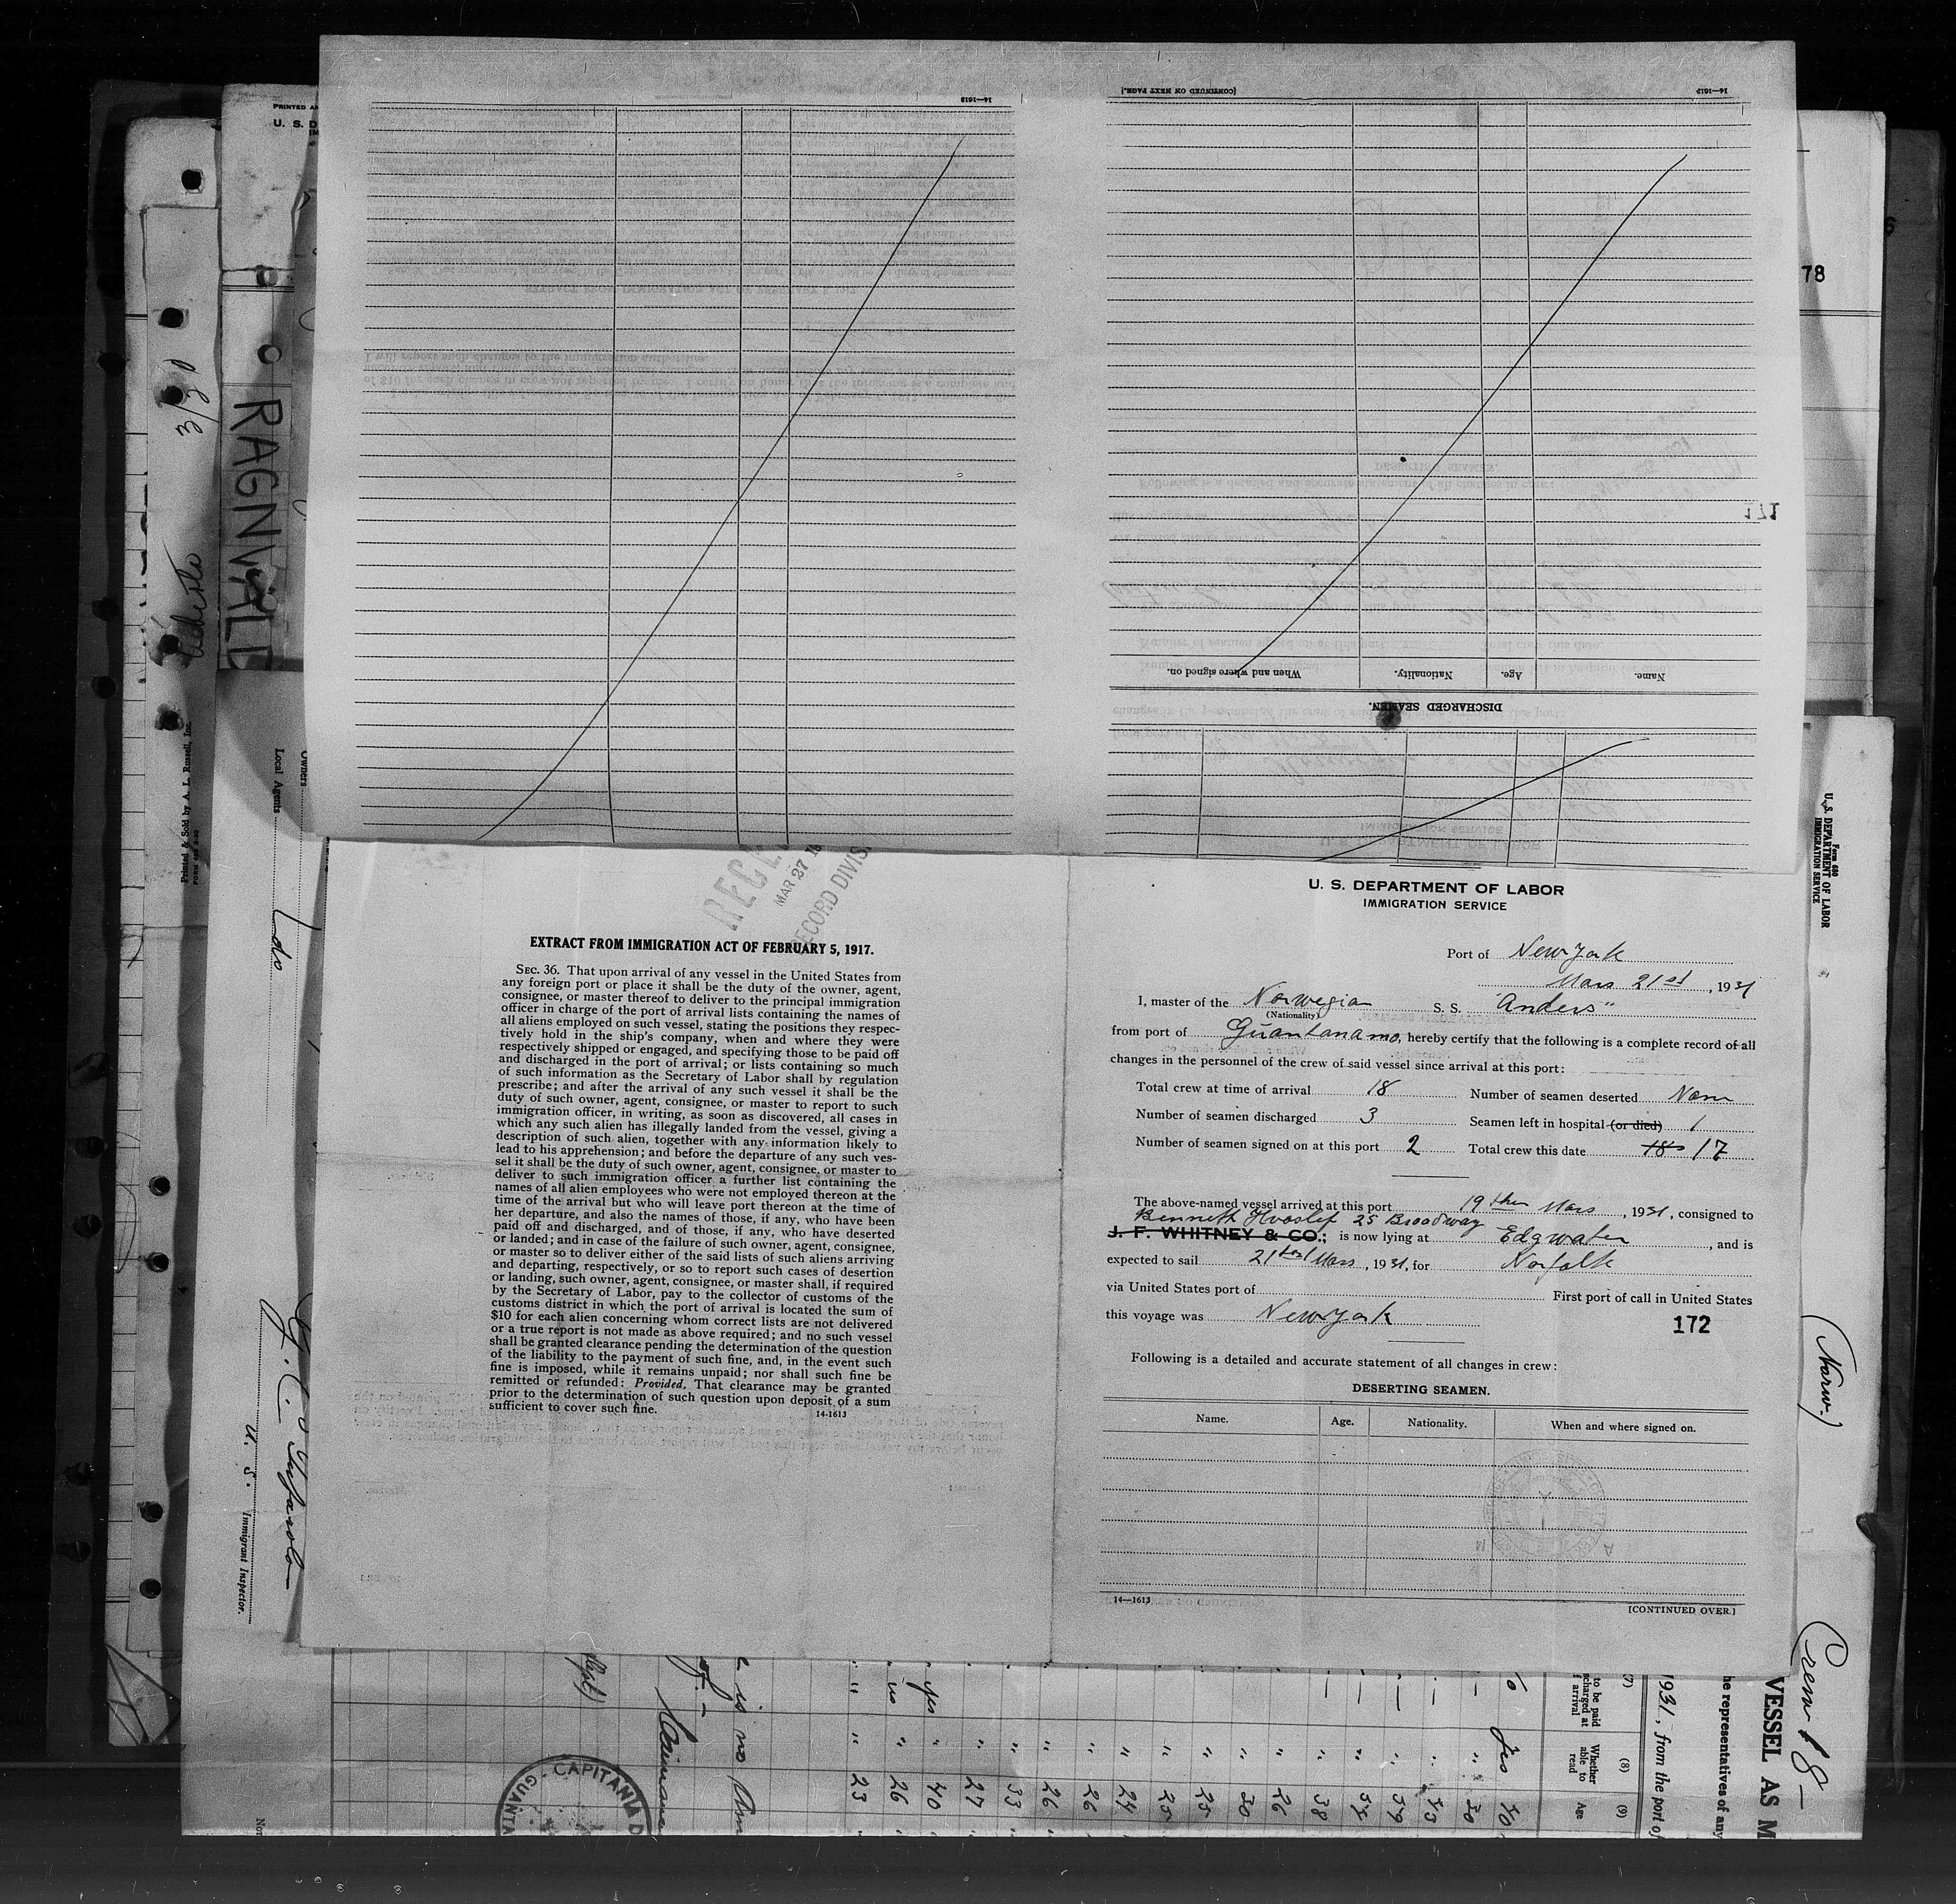 [CONTINUED ON NEXT PAGE.]
14—1613
14—1613
171
Name.
Age.
Nationality.
When and where signed on.
DISCHARGED SEAMEN.
PRINTED AN
U. S. D
3/20
RAGNVALD
Printed & Sold by A. L. Russell, Inc.
Owners
Local Agents
do
U. S. Immigrant Inspector.
78
MAR 27
RECORD DIVIS
EXTRACT FROM IMMIGRATION ACT OF FEBRUARY 5, 1917.
SEC. 36. That upon arrival of any vessel in the United States from
any foreign port or place it shall be the duty of the owner, agent,
consignee, or master thereof to deliver to the principal immigration
officer in charge of the port of arrival lists containing the names of
all aliens employed on such vessel, stating the positions they respec-
tively hold in the ship's company, when and where they were
respectively shipped or engaged, and specifying those to be paid off
and discharged in the port of arrival; or lists containing so much
of such information as the Secretary of Labor shall by regulation
prescribe; and after the arrival of any such vessel it shall be the
duty of such owner, agent, consignee, or master to report to such
immigration officer, in writing, as soon as discovered, all cases in
which any such alien has illegally landed from the vessel, giving a
description of such alien, together with any information likely to
lead to his apprehension; and before the departure of any such ves-
sel it shall be the duty of such owner, agent, consignee, or master to
deliver to such immigration officer a further list containing the
names of all alien employees who were not employed thereon at the
time of the arrival but who will leave port thereon at the time of
her departure, and also the names of those, if any, who have been
paid off and discharged, and of those, if any, who have deserted
or landed; and in case of the failure of such owner, agent, consignee,
or master so to deliver either of the said lists of such aliens arriving
and departing, respectively, or so to report such cases of desertion
or landing, such owner, agent, consignee, or master shall, if required
by the Secretary of Labor, pay to the collector of customs of the
customs district in which the port of arrival is located the sum of
$10 for each alien concerning whom correct lists are not delivered
or a true report is not made as above required; and no such vessel
shall be granted clearance pending the determination of the question
of the liability to the payment of such fine, and, in the event such
fine is imposed, while it remains unpaid; nor shall such fine be
remitted or refunded: Provided, That clearance may be granted
prior to the determination of such question upon deposit of a sum
sufficient to cover such fine.
14-1613
U. S. DEPARTMENT OF LABOR
IMMIGRATION SERVICE
Port of New York
Mars 21st, 1931
I, master of the Norwegian S. S. Anders"
(Nationality)
from port of Guantanamo, hereby certify that the following is a complete record of all
changes in the personnel of the crew of said vessel since arrival at this port:
Total crew at time of arrival 18 Number of seamen deserted Non
Number of seamen discharged 3 Seamen left in hospital (or died) 1
Number of seamen signed on at this port 2 Total crew this date 18 17
The above-named vessel arrived at this port 19 Mars, 1931, consigned to
Kenneth Hvoslef 25 Broadway
J. F. WHITNEY & CO.; is now lying at Edgwater, and is
expected to sail 21 Mars, 1931, for Norfolk
via United States port of First port of call in United States
this voyage was New York
172
Following is a detailed and accurate statement of all changes in crew:
DESERTING SEAMEN.
Name. Age. Nationality. When and where signed on.
14—1613
[CONTINUED OVER.]
Form 680
U. S. DEPARTMENT OF LABOR
IMMIGRATION SERVICE
(Norw.)
Crew 18 —
VESSEL AS M
he representatives of any
1931, from the port of
(7) (8) (9)
to be paid
scharged at
f arrival
Whether
able to
read
Age
CAPITANIA D
GUANTA